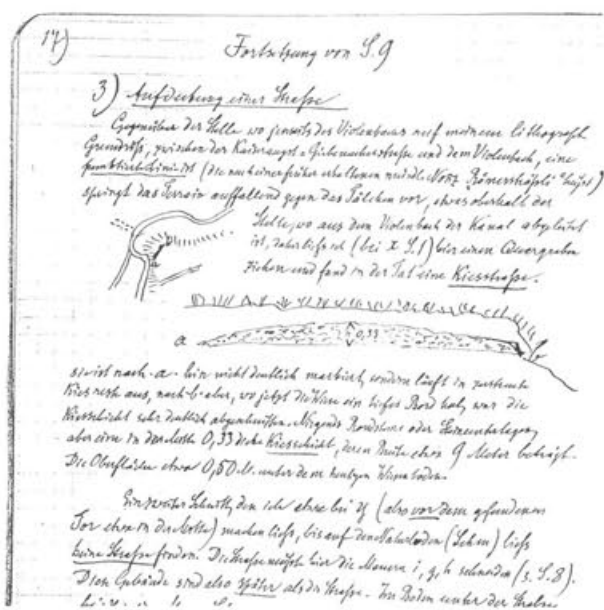 17)
Fortsetzung von S. 9
3) Aufdeckung einer Strasse
Gegenüber der Stelle wo jenseits des Violenbaches auf meinem lithograph.
Grundriss, zwischen der Kaiseraugst-Giebenacherstrasse und dem Violenbach, eine
punktierte Linie ist (die nach einer früher erhaltenen mündl. Notiz "Römersträssli" heisst)
springt das Terrain auffallend gegen das Tälchen vor, etwas oberhalb der
Stelle, wo aus dem Violenbach der Kanal abgeleitet
ist, daher liess ich (bei x S. 1) hier einen Quergraben
ziehen und fand in der Tat eine Kiesstrasse.
a
0,33
b
a
sie ist nach -a- hin nicht deutlich markiert, sondern läuft in zerstreute
Kiesreste aus, nach -b- aber, wo jetzt die Wiese ein tiefes Bord hat, war die
Kiesschicht sehr deutlich abgeschnitten. Nirgends Randsteine oder Steineinlagen,
aber eine in der Mitte 0,33 dicke Kiesschicht, deren Breite etwa 9 Meter beträgt.
Die Oberfläche etwa 0,50 M. unter dem heutigen Wiesenboden.
Ein zweiter Schnitt, den ich etwa bei y (also vor dem gefundenen
Tor etwa in der Mitte) machen liess, bis auf den Naturboden (Lehm) liess
keine Strasse finden. Die Strasse müsste hier die Mauern i, g, h schneiden (s. S. 8)
Diese Gebäude sind also später als die Strasse. Im Boden unter der